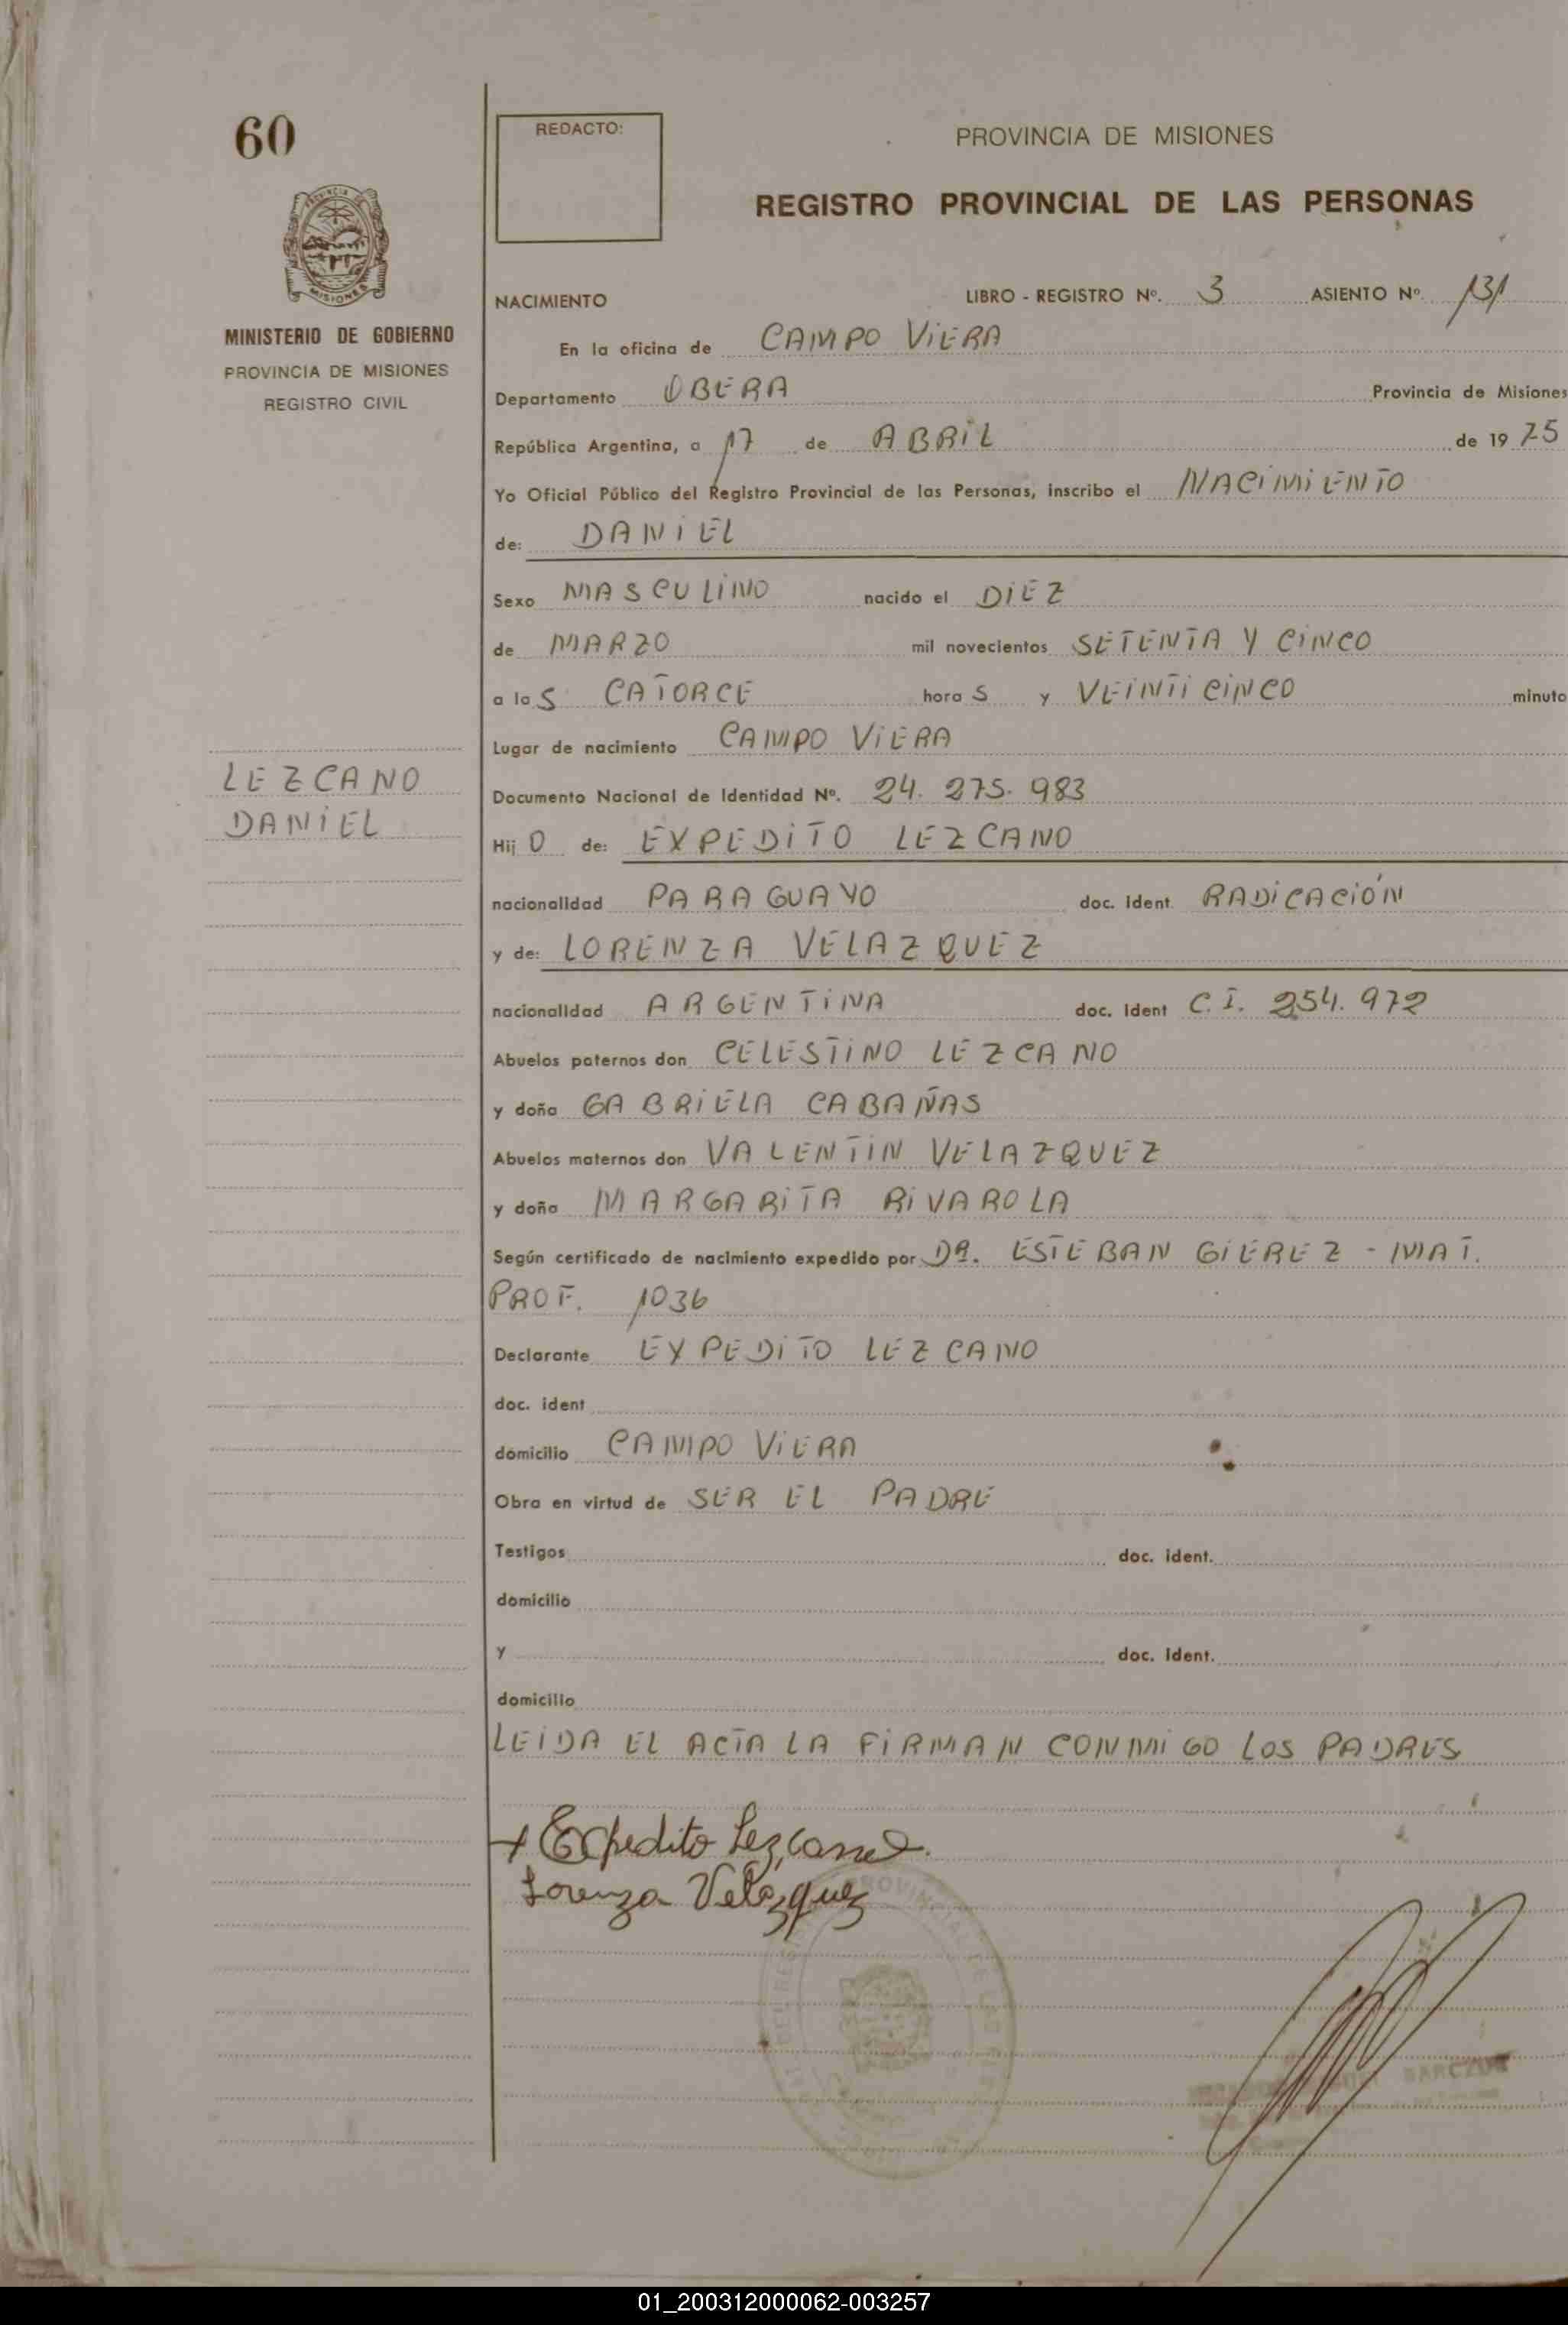 60
REDACTO:
PROVINCIA DE MISIONES
REGISTRO PROVINCIAL DE LAS PERSONAS
MISIONES
MINISTERIO DE GOBIERNO
PROVINCIA DE MISIONES
REGISTRO CIVIL
NACIMIENTO LIBRO - REGISTRO Nº. 3 ASIENTO Nº. 131
En la oficina de CAMPO VIERA
Departamento OBERA Provincia de Misiones
República Argentina, a 17 de ABRIL de 1975
Yo Oficial Público del Registro Provincial de las Personas, inscribo el NACIMIENTO
de: DANIEL
Sexo MASCULINO nacido el DIEZ
de MARZO mil novecientos SETENTA Y CINCO
a las CATORCE horas y VEINTICINCO minuto
Lugar de nacimiento CAMPO VIERA
LEZCANO
DANIEL
Documento Nacional de Identidad Nº. 24.275.983
Hijo de: EXPEDITO LEZCANO
nacionalidad PARAGUAYO doc. ident. RADICACIÓN
y de: LORENZA VELAZQUEZ
nacionalidad ARGENTINA doc. ident C.I. 254.972
Abuelos paternos don CELESTINO LEZCANO
y doña GABRIELA CABAÑAS
Abuelos maternos don VALENTIN VELAZQUEZ
y doña MARGARITA RIVAROLA
Según certificado de nacimiento expedido por DR. ESTEBAN GIEREZ - MAT.
PROF. 1036
Declarante EXPEDITO LEZCANO
doc. ident
domicilio CAMPO VIERA
Obra en virtud de SER EL PADRE
Testigos doc. ident.
domicilio
y doc. ident.
domicilio
LEIDA EL ACTA LA FIRMAN CONMIGO LOS PADRES
+ Expedito Lezcano.
Lorenza Velazquez
01_200312000062-003257